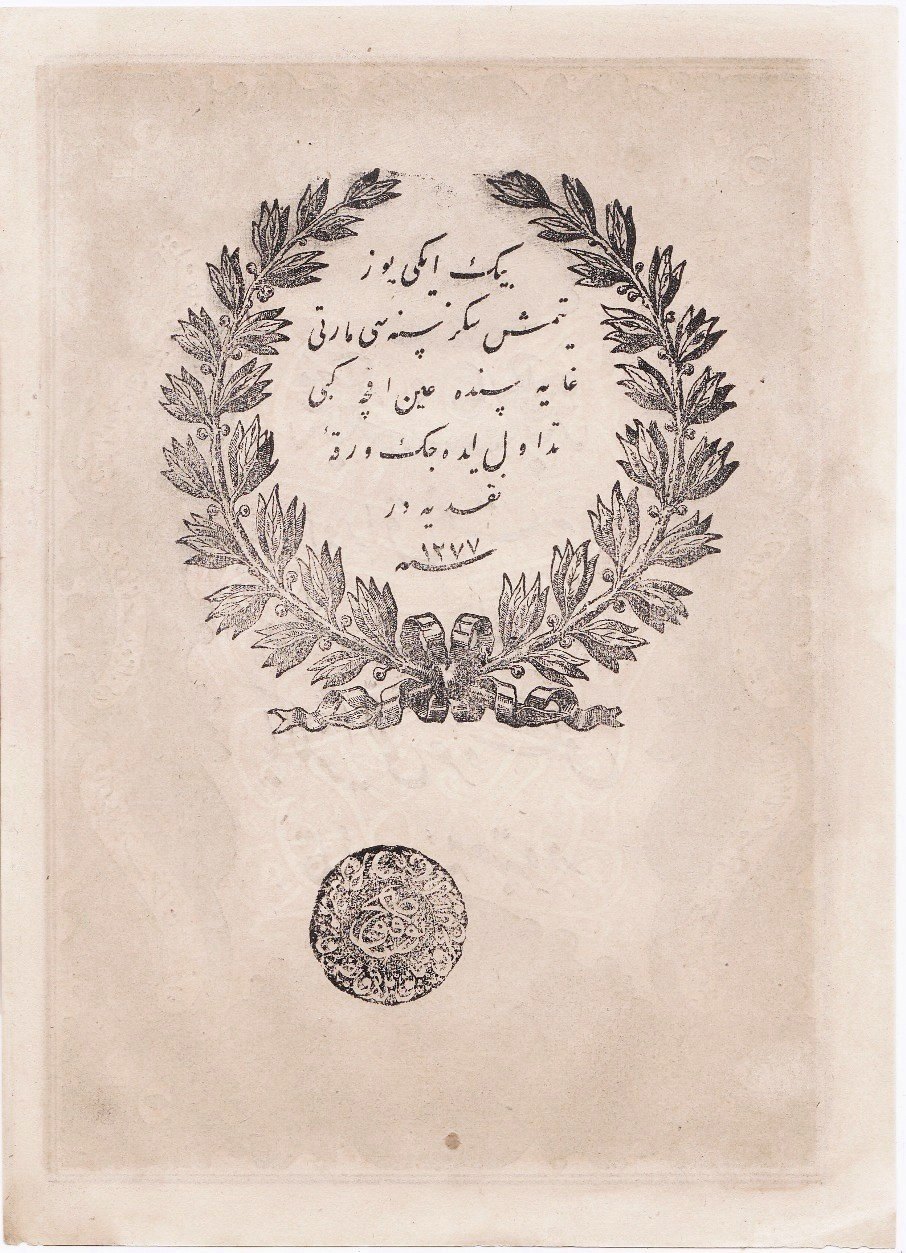 بیك ایكی یوز
یتمش سكز سنه سی مارتی
غایه سنده عین اقچه كبی
تداول ایده جك ورقهٔ
نقدیه در
سنه ١٢٧٧